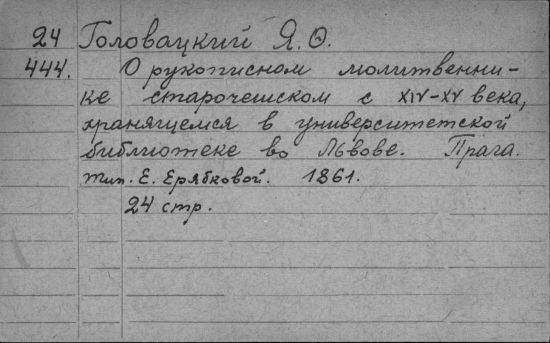 24 Головацкий Я. Ѳ.
444. О рукописном молитвенни-
ке старочешском с XIV-XV века,
хранящемся в университетской
библиотеке во Львове. Прага.
тип. Е. Ерябковой. 1861.
24 стр.